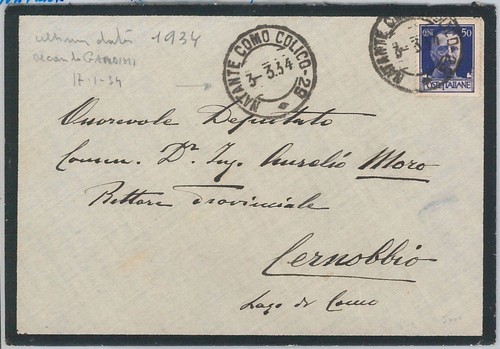 ultima data 1934
secondo GAGGINI
17-1-34
NATANTE COMO COLICO-29
3-3.34
NATANTE COMO
3-3
CEN. 50
POSTE ITALIANE
Onorevole Deputato
Comm. Dr. Ing. Aurelio Moro
Rettore Provinciale
Cernobbio
Lago di Como